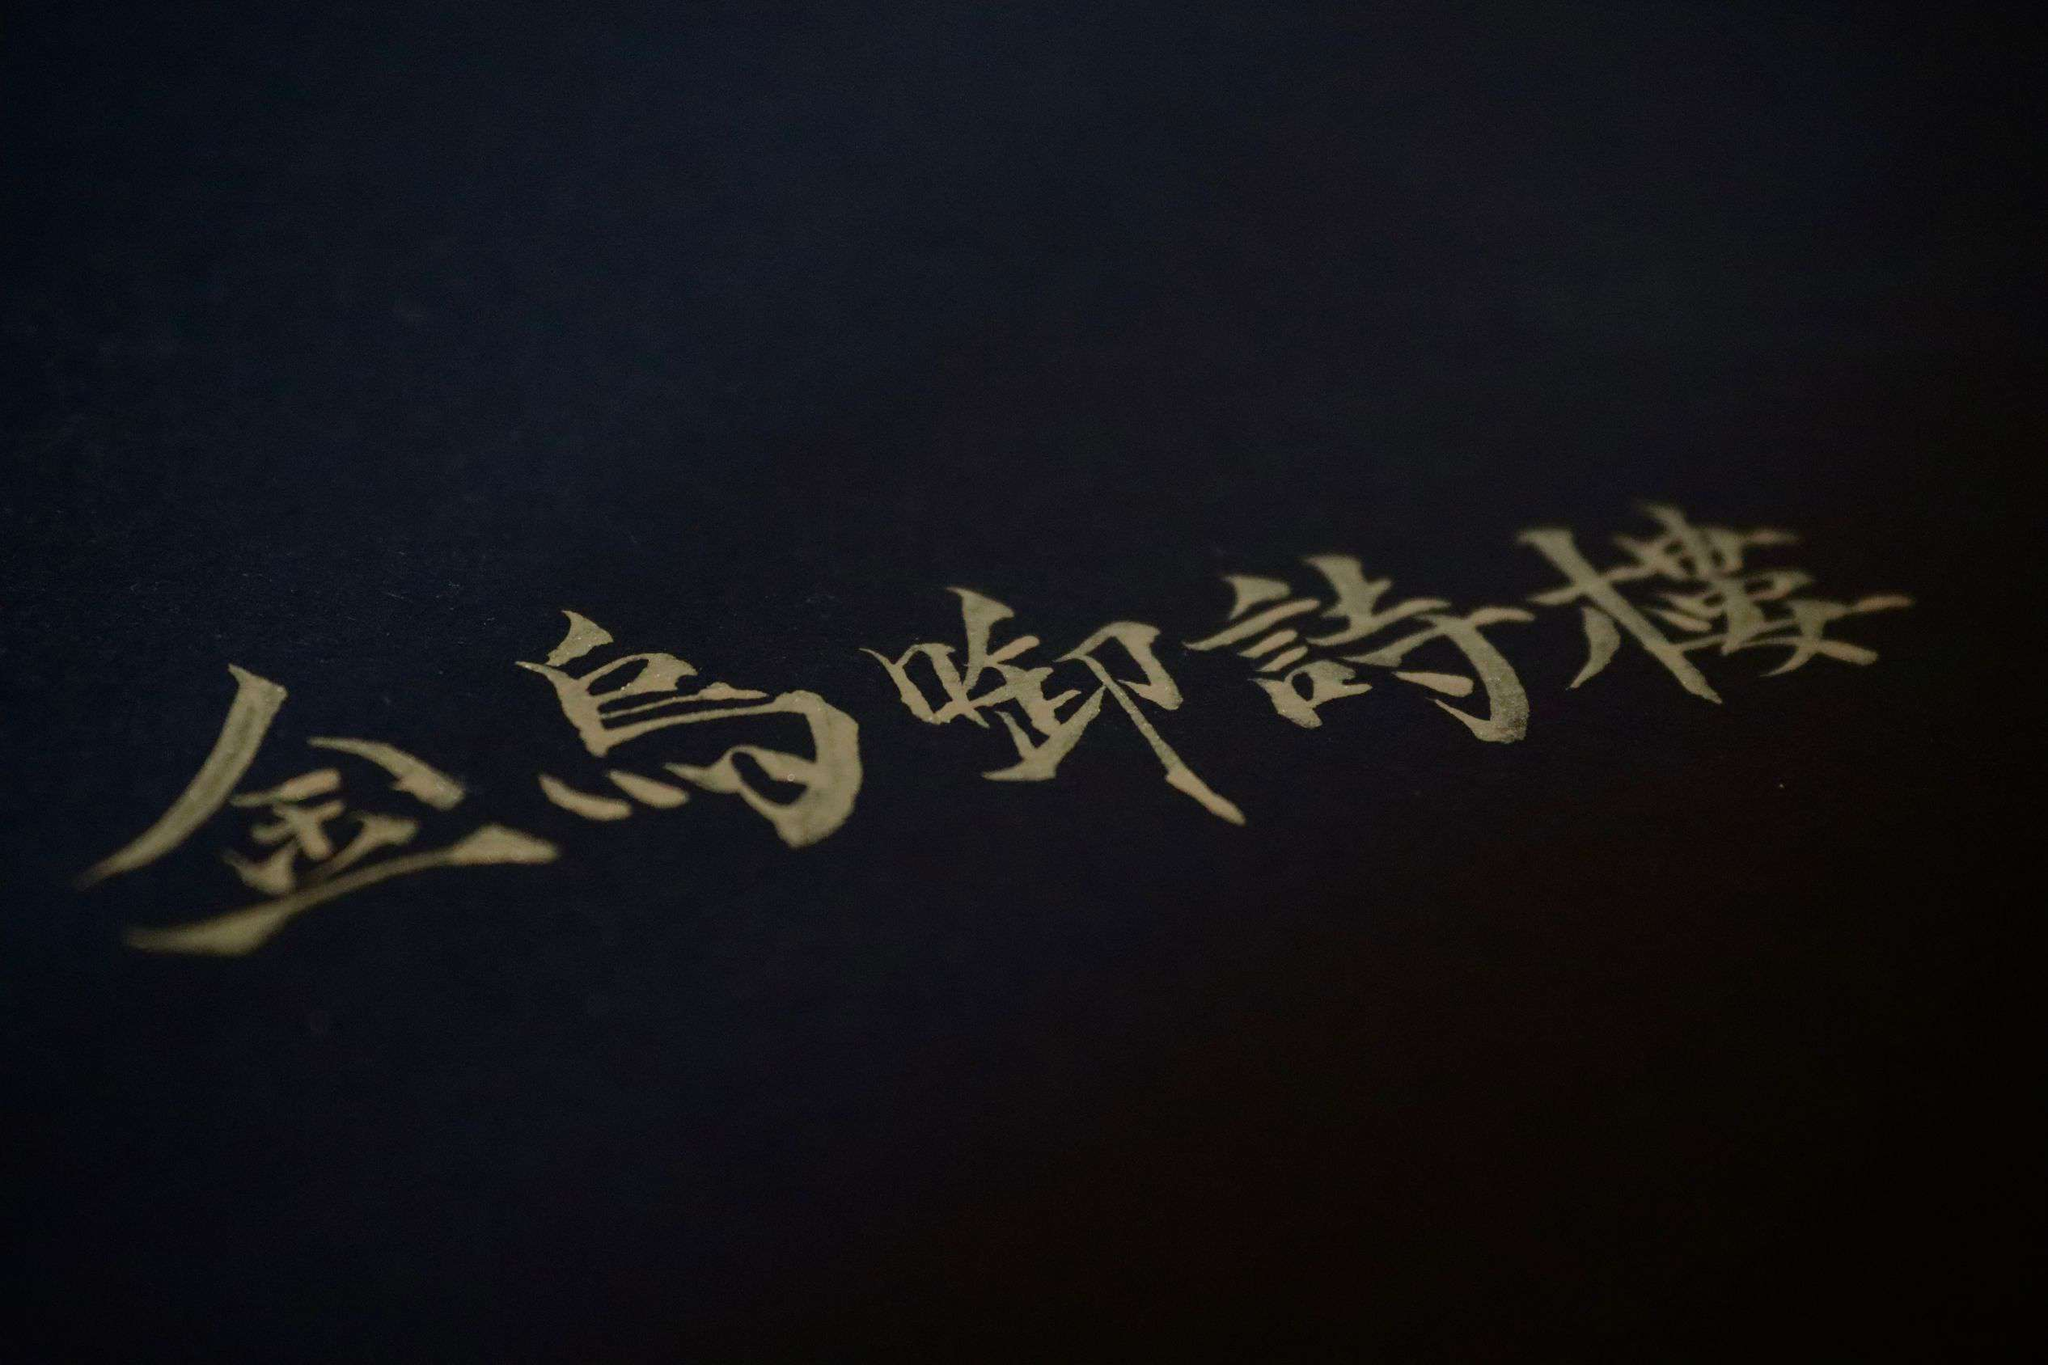 金烏啣詩樓